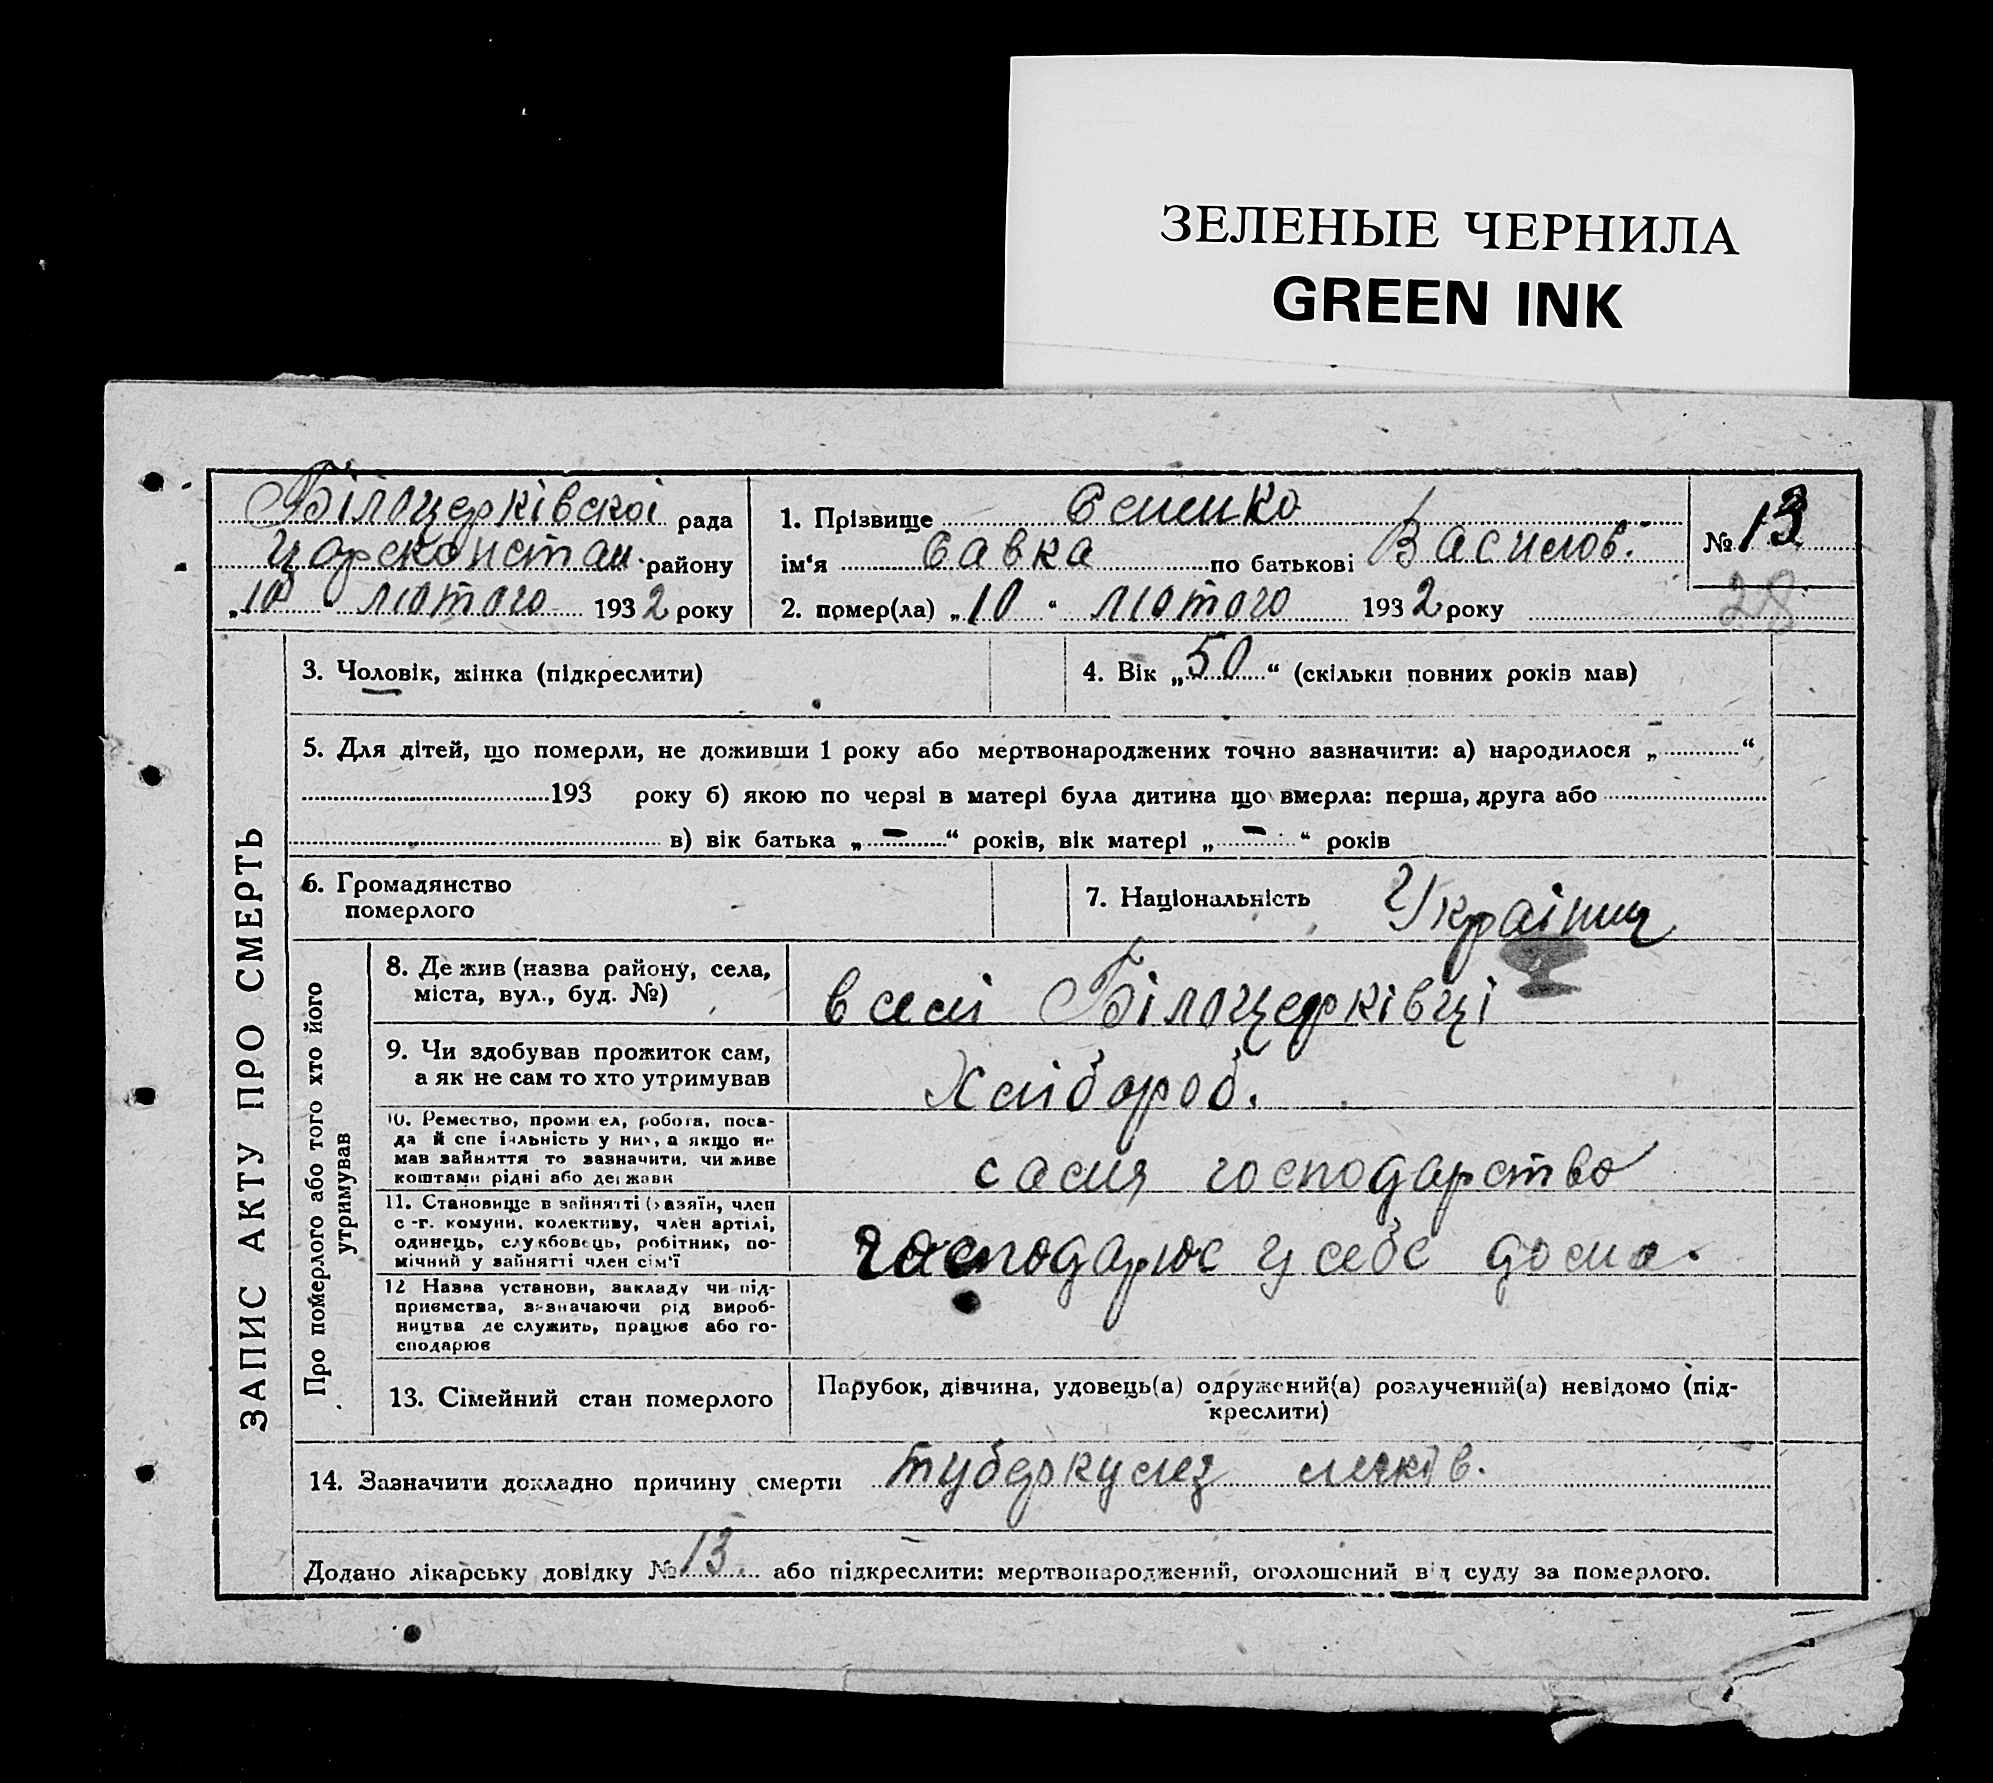 ЗЕЛЕНЫЕ ЧЕРНИЛА
GREEN INK
Білоцерківскої рада
Царсконстан. району
„10" лютого 1932 року
1. Прізвище Сененко
ім'я Савка по батькові Василов.
2. помер(ла) „10" лютого 1932 року
№ 13
28
ЗАПИС АКТУ ПРО СМЕРТЬ
3. Чоловік, жінка (підкреслити)
4. Вік „50" (скільки повних років мав)
5. Для дітей, що померли, не доживши 1 року або мертвонароджених точно зазначити: а) народилося „ "
193 року б) якою по черзі в матері була дитина що вмерла: перша, друга або
в) вік батька „–" років, вік матері „–" років
6. Громадянство
померлого
7. Національність Українц
Про померлого або того хто його
утримував
8. Де жив (назва району, села,
міста, вул., буд. №)
в селі Білоцерківці
9. Чи здобував прожиток сам,
а як не сам то хто утримував
Хлібороб.
10. Ремество, промисел, робота, поса-
да й спеціяльність у них, а якщо не
мав зайняття то зазначити, чи живе
коштами рідні або держави
сасия господарство
11. Становище в зайнятті (хазяїн, член
с.-г. комуни, колективу, член артілі,
одинець, службовець, робітник, по-
мічний у зайнятті член сім'ї
господарює у себе дома.
12 Назва установи, закладу чи під-
приємства, визначаючи рід вироб-
ництва де служить, працює або го-
сподарює
13. Сімейний стан померлого
Парубок, дівчина, удовець(а) одружений(а) розлучений(а) невідомо (під-
креслити)
14. Зазначити докладно причину смерти туберкулез легків.
Додано лікарську довідку № 13 або підкреслити: мертвонароджений, оголошений від суду за померлого.